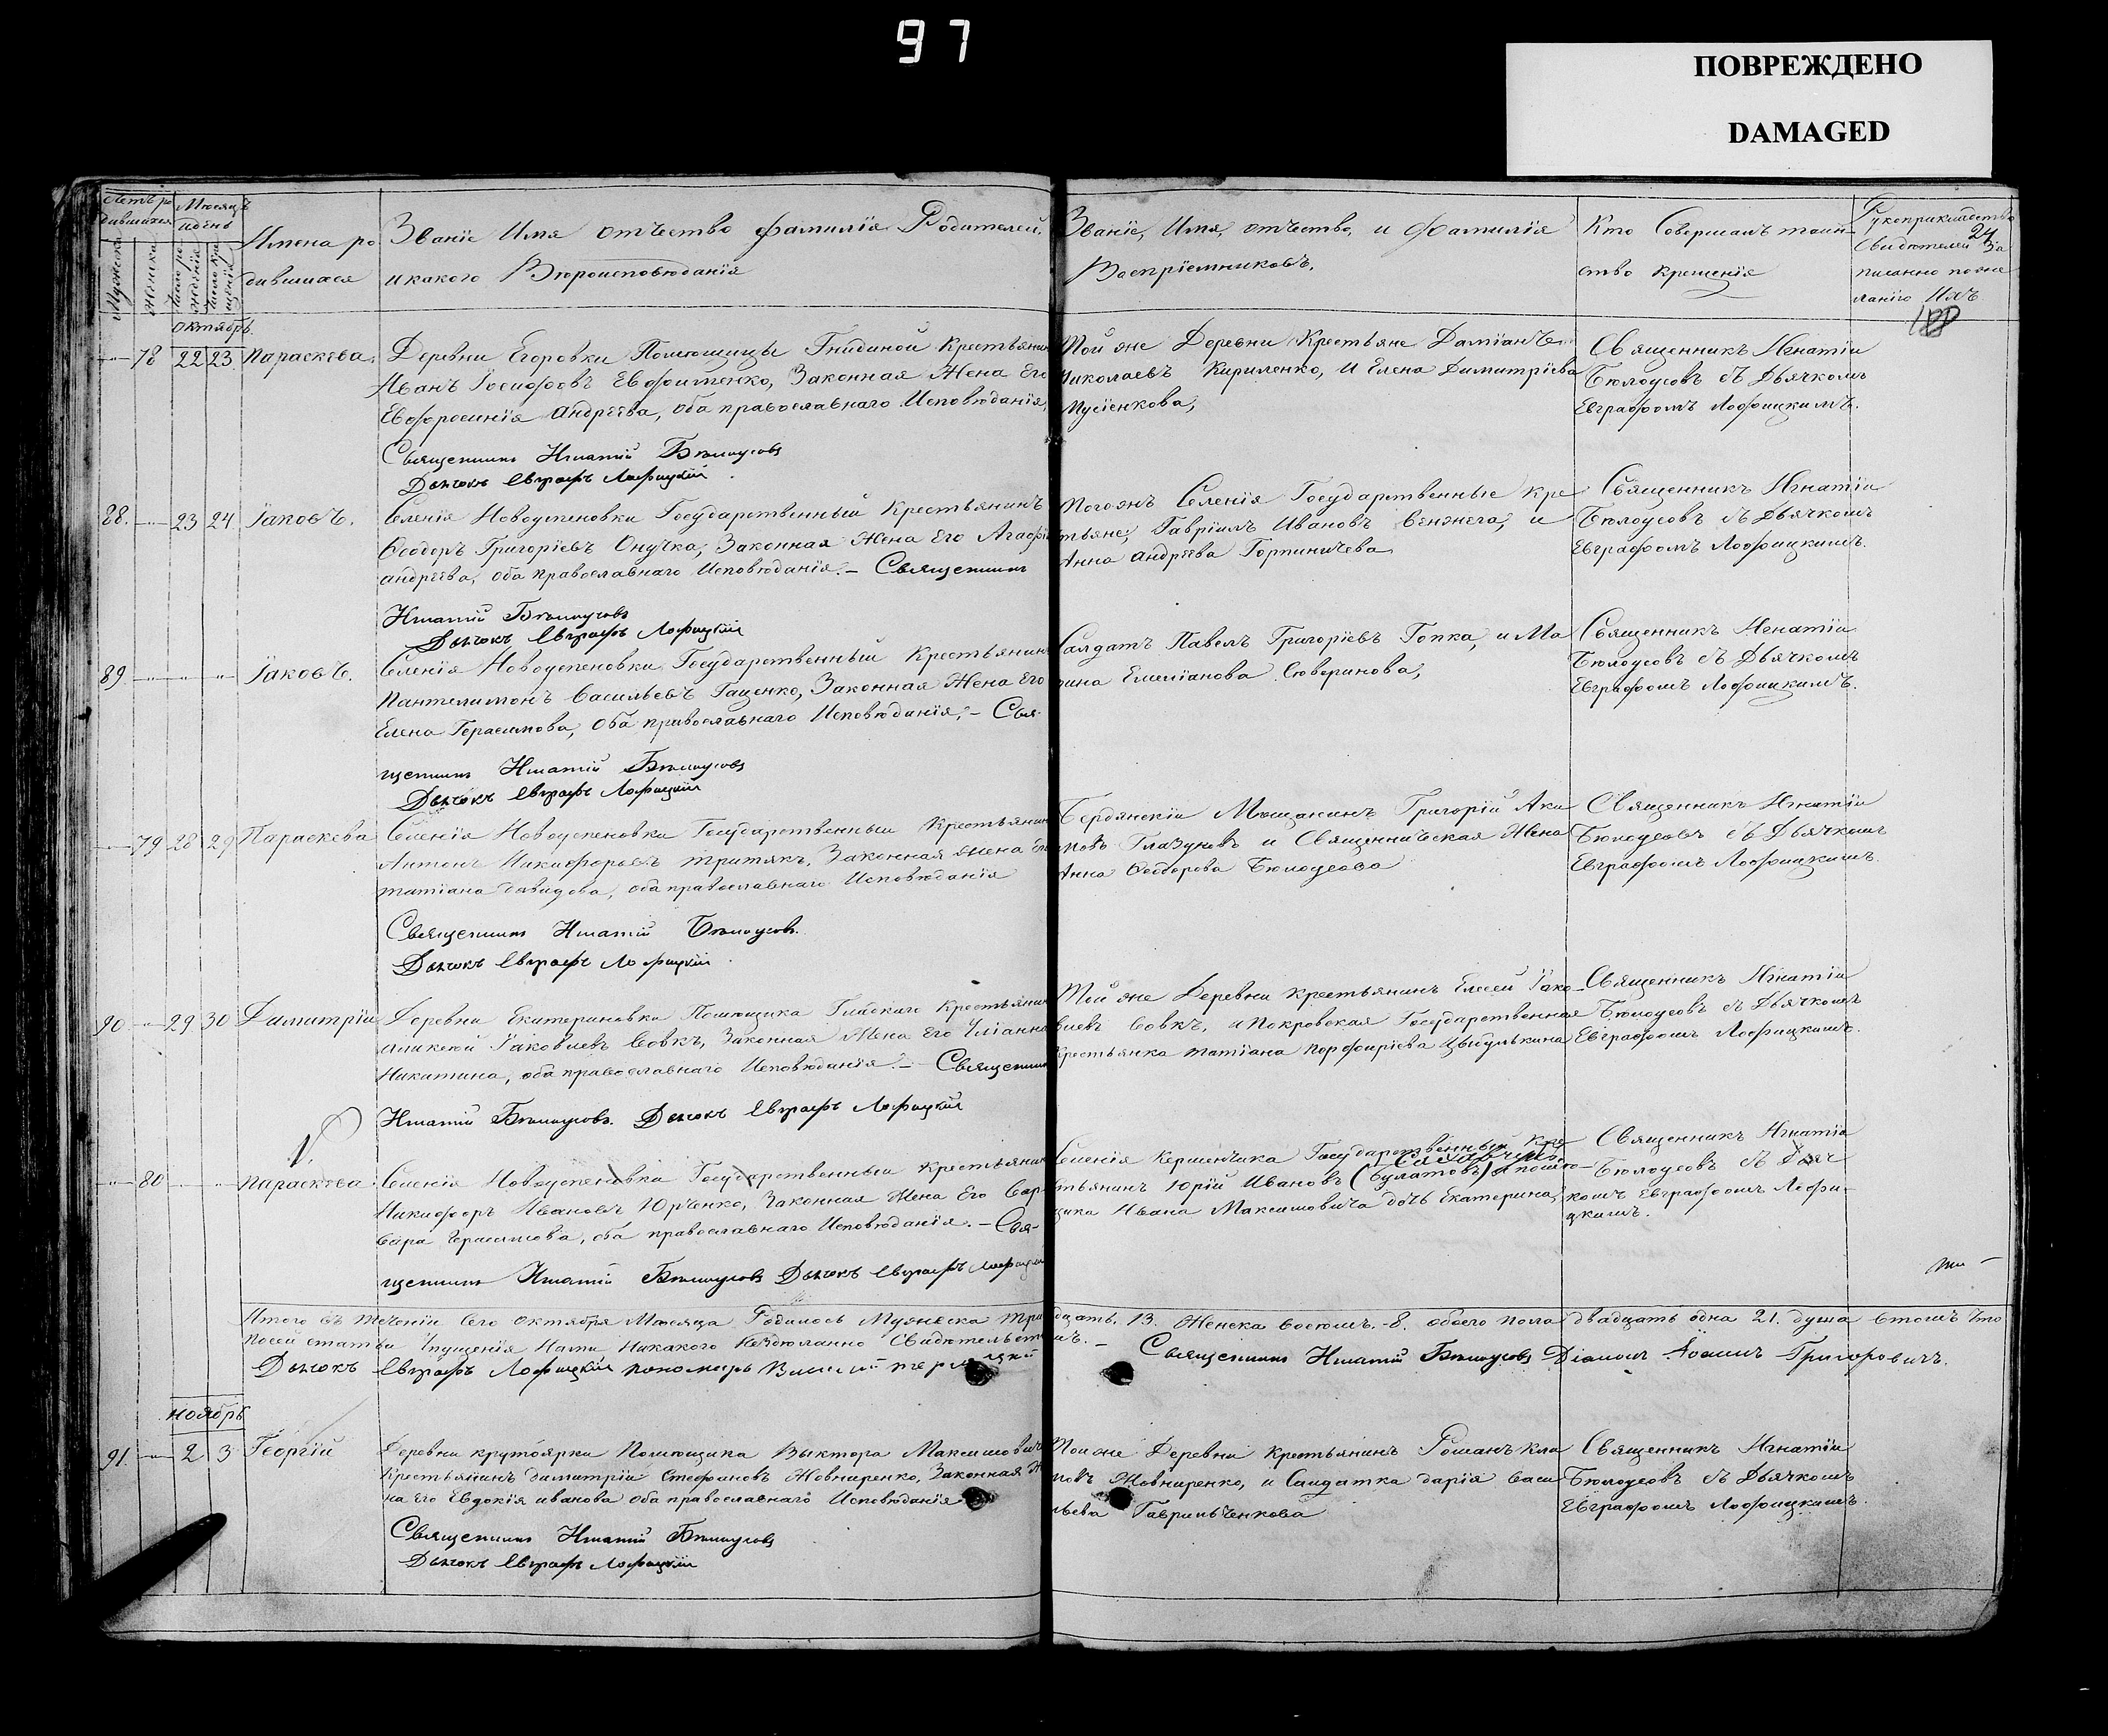 97
ПОВРЕЖДЕНО
DAMAGED
Мѣсяцъ
и день
Имена ро
дившихся
Званіе Имя отчество фамилія Родителей,
и какого Вѣроисповѣданія
Званіе, Имя, отчество, и фамилія
Воспріемниковъ.
Кто Совершалъ таин-
ство крещенія
Рукоприкладство
24
Свидѣтелей За
писанно по же
ланію Ихъ
октябрь.
78 22 23 Параскева.
Деревни Егоровки Помѣщицы Гнидиной Крестьянин
Иванъ Іосифовъ Евфименко, Законная Жена Его
Евфросинія Андрѣева, оба православнаго Исповѣданія,
Священникъ Игнатій Бѣлоусовъ
Дьячокъ Евграфъ Лофицкій
Той же Деревни Крестьяне Даміанъ
Николаевъ Кириленко, и Елена Димитріева
Мусіенкова,
Священникъ Игнатій
Бѣлоусовъ съ Дьячкомъ
Евграфомъ Лофицкимъ.
88. 23 24 Іаковъ.
Селенія Новоуспеновки Государственный Крестьянинъ
Феодоръ Григоріевъ Онучка, Законная Жена Его Агафі
андрѣева, оба православнаго Исповѣданія. – Священникъ
Игнатій Бѣлоусовъ
Дьячокъ Евграфъ Лофицкій
Тогожъ Селенія Государственные Кре
стьяне, Гавріилъ Ивановъ и
Анна андрѣева Горпиничева
Священникъ Игнатій
Бѣлоусовъ съ Дьячкомъ
Евграфомъ Лофицкимъ.
89 Іаковъ.
Селенія Новоуспеновки Государственный Крестьянин
Пантелимонъ Васильевъ Гащенко, Законная Жена Его
Елена Герасимова, оба православнаго Исповѣданія, – Свя-
щенникъ Игнатій Бѣлоусовъ
Дьячокъ Евграфъ Лофицкій
Салдатъ Павелъ Григоріевъ Гопка, и Ма
рина Емеліанова Северинова,
Священникъ Игнатій
Бѣлоусовъ съ Дьячкомъ
Евграфомъ Лофицкимъ.
79 28 29 Параскева
Селенія Новоуспеновки Государственный Крестьянин
Антонъ Никифорьевъ Притякъ, Законная жена Ег
татіана давидова, оба православнаго Исповѣданія
Священникъ Игнатій Бѣлоусовъ.
Дьячокъ Евграфъ Лофицкій
Бердянскій Мѣщанинъ Григорій Аки
мовъ Глазуновъ и Священническая Жена
Анна Феодорова Бѣлоусова
Священникъ Игнатій
Бѣлоусовъ съ Дьячкомъ
Евграфомъ Лофицкимъ.
90 29 30 Димитрій
Деревни Екатериновки Помѣщика Крестьянин
Аликсѣй Іаковлевъ Вовкъ, Законная Жена Его Уліанна
Никитина, оба православнаго Исповѣданія. – Священник
Игнатій Бѣлоусовъ. Дьячокъ Евграфъ Лофицкій
Той же Деревни крестьянинъ Елесей Іако
влевъ Вовкъ, и Покровская Государственная
Крестьянка татіана Порфиріева Цыбулькина
Священникъ Игнатій
Бѣлоусовъ съ Дьячкомъ
Евграфомъ Лофицкимъ.
80 Параскева
Селенія Новоуспеновки Государственный Крестьянин
Никифоръ Ивановъ Юрченко, Законная Жена Его Вар-
вара Герасимова, оба православнаго Исповѣданія. – Свя-
щенникъ Игнатій Бѣлоусовъ Дьячокъ Евграфъ Лофицкій
Селенія Керменчика Государственный Кре
стьянинъ Юрій Ивановъ (Булатовъ) и помѣ
щика Ивана Максимовича дочь Екатерина,
Священникъ Игнатій
Бѣлоусовъ съ Дьяч
комъ Евграфомъ Лофи-
цкимъ.
Итого въ теченіи Сего октября Мѣсяца Родилось Мужеска Три надцать, 13. Женска восемь. – 8. обоего пола двадцать одна 21. душа втомъ Что
посей статьи Упущенія Нами Никакого Несдѣланно Свидѣтельствуемъ. –
Дьячокъ Евграфъ Лофицкій пономарь
Священникъ Игнатій Бѣлоусовъ Діаконъ Іоаннъ Григоровичъ.
ноябрь
91. 2 3 Георгій
Деревни крутоярки Помѣщика Выктора Максимовича
Крестьянинъ Димитрій Стефановъ Жовниренко, Законная Же
на Его Евдокія иванова оба православнаго Исповѣданія
Священникъ Игнатій Бѣлоусовъ
Дьячокъ Евграфъ Лофицкій
Той же Деревни Крестьянинъ Романъ Кли
мовъ Жовниренко, и Салдатка дарія Васи
льева Гаврильченкова
Священникъ Игнатій
Бѣлоусовъ съ Дьячкомъ
Евграфомъ Лофицкимъ.